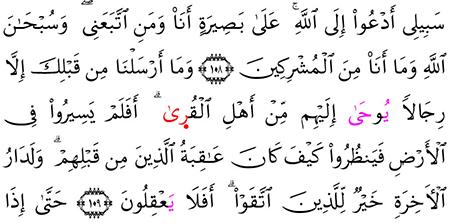 سَبِيلِى أَدْعُوا۟ إِلَى ٱللَّهِ ۚ عَلَىٰ بَصِيرَةٍ أَنَا۠ وَمَنِ ٱتَّبَعَنِى ۖ وَسُبْحَـٰنَ
ٱللَّهِ وَمَا أَنَا۠ مِنَ ٱلْمُشْرِكِينَ ﴿١٠٨﴾ وَمَا أَرْسَلْنَا مِن قَبْلِكَ إِلَّا
رِجَالًا يُوحَىٰ إِلَيْهِم مِّنْ أَهْلِ ٱلْقُرِىٰ ۗ أَفَلَمْ يَسِيرُوا۟ فِى
ٱلْأَرْضِ فَيَنظُرُوا۟ كَيْفَ كَانَ عَـٰقِبَةُ ٱلَّذِينَ مِن قَبْلِهِمْ ۗ وَلَدَارُ
ٱلْأَخِرَةِ خَيْرٌ لِّلَّذِينَ ٱتَّقَوْا۟ ۗ أَفَلَا يَعْقِلُونَ ﴿١٠٩﴾ حَتَّىٰ إِذَا